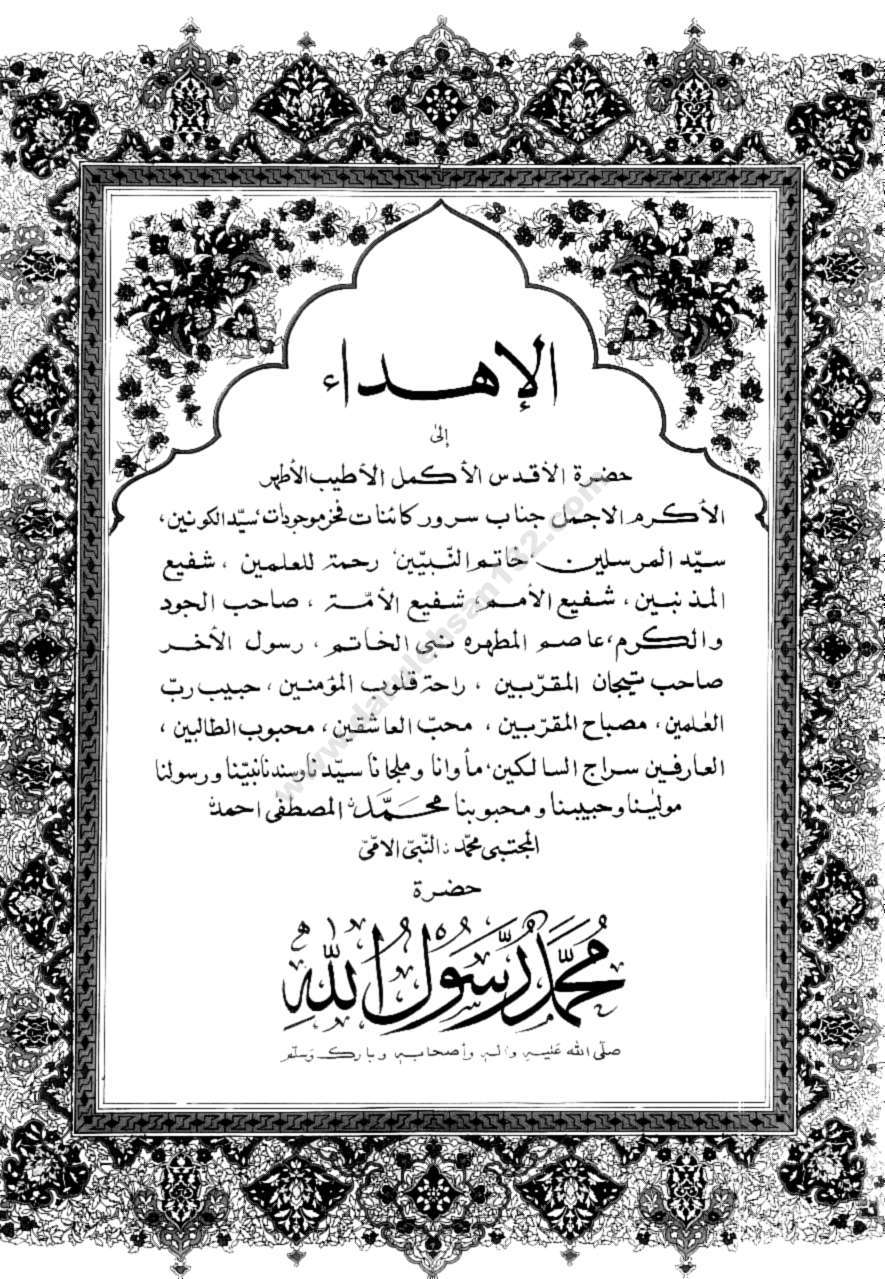 الإهداء
إلىٰ
حضرة الأقدس الأكمل الأطيب الأطهر
الأكرم الاجمل جناب سرور كائنات فخر موجودات، سيّد الكونين،
سيّد المرسلين خاتم النّبيّين، رحمة للعلمين، شفيع
المذنبين، شفيع الأمم، شفيع الأمّة، صاحب الجود
والكرم، عاصم المطهره نبی الخاتم، رسول الأخر
صاحب تيجان المقرّبين، راحة قلوب المؤمنين، حبيب ربّ
العٰلمين، مصباح المقرّبين، محبّ العاشقين، محبوب الطالبين،
العارفين سراج السالكين، مأوانا وملجانا سيّدنا وسندنا نبيّنا ورسولنا
مولٰينا وحبيبنا ومحبوبنا محمّد المصطفى احمد
المجتبى محمّد النّبيّ الامّيّ
حضرة
مُحَمَّد رَّسُولُ اللّٰهِ
صلّى الله عليه واله وأصحابه وبارك وسلم
www.darulehsan112.com